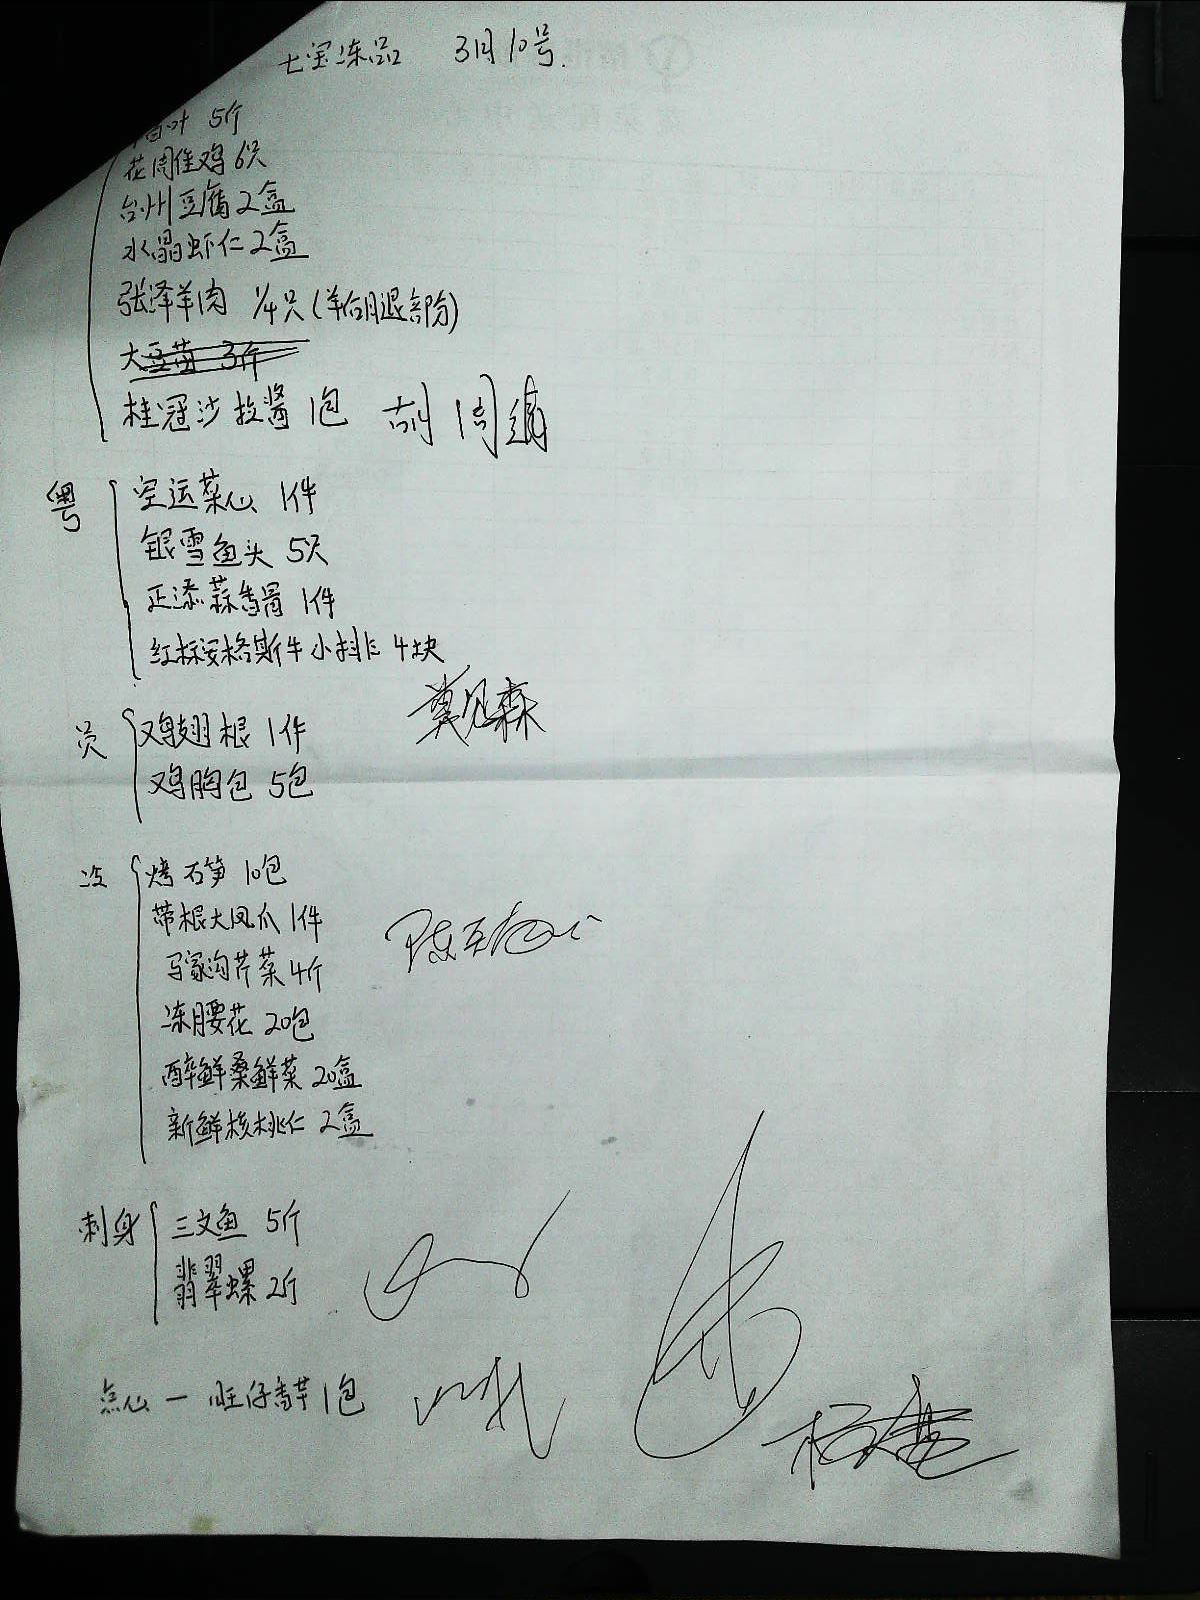 七宝冻品 3月10号.
百叶 5斤
花周佳鸡 6只
台州豆腐 2盒
水晶虾仁 2盒
张泽羊肉 1/4只(羊后腿部份)
大豆苗 3斤
桂冠沙拉酱 1包 胡周瑜
粤 空运菜心 1件
银雪鱼头 5只
正添蒜香骨 1件
红标安格斯牛小排 4块
员 鸡翅根 1件
鸡胸包 5包
冷 烤石笋 10包
带根大凤爪 1件
马家沟芹菜 4斤
冻腰花 20包
醉鲜桑鲜菜 20盒
新鲜核桃仁 2盒
刺身 三文鱼 5斤
翡翠螺 2斤
点心 — 旺仔香芋 1包